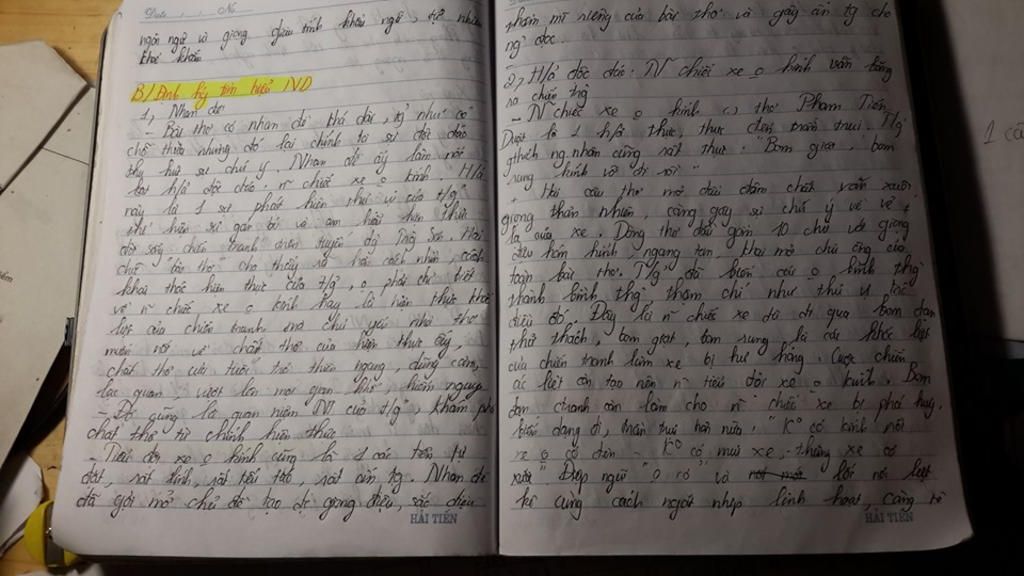 Date ..... No .....
ngôn ngữ và giọng điệu tính khẩu ngữ, tự nhiên
khoẻ khoắn
B/ Định hướng tìm hiểu ND
1, Nhan đề
- Bài thơ có nhan đề khá dài, tg như có
chỗ thừa nhưng đó lại chính là sự độc đáo
thu hút sự chú ý. Nhan đề ấy làm nổi
bật h/ả độc đáo: n~ chiếc xe o kính. H/ả
này là 1 sự phát hiện thú vị của t/g
thể hiện sự gắn bó và am hiểu hiện thực
đời sống chiến tranh trên tuyến đg Trg Sơn. Hai
chữ "bài thơ" cho thấy rõ hơn cách nhìn, cách
khai thác hiện thực của t/g, o phải chỉ viết
về n~ chiếc xe o kính hay là hiện thực khốc
liệt của chiến tranh mà chủ yếu nhà thơ
muốn nói về chất thơ của hiện thực ấy,
chất thơ của tuổi trẻ hiên ngang, dũng cảm,
lạc quan, vượt lên mọi gian khổ, hiểm nguy
- Đó cũng là quan niệm NT của t/g, khám phá
chất thơ từ chính hiện thực
- Tiểu đội xe o kính cũng là 1 cái tên tự
đặt, rất lính, rất tếu táo, rất ấn tg. Nhan đề
đã gợi mở chủ đề tạo đc giọng điệu, sắc điệu
HẢI TIẾN
thẩm mĩ riêng của bài thơ và gây ấn tg cho
ng đọc.
2, H/ả độc đáo: N~ chiếc xe o kính vẫn băng
ra chiến trg
- N~ chiếc xe o kính thơ Phạm Tiến
Duật là 1 h/ả thực, thực đến trần trụi. T/g
gthích ng.nhân cũng rất thực: "Bom giật, bom
rung kính vỡ đi rồi"
+ Hai câu thơ mở đầu đậm chất văn xuôi,
giọng thản nhiên, càng gây sự chú ý về vẻ
lạ của xe. Dòng thơ đầu gồm 10 chữ với giọng
điệu hóm hỉnh, ngang tàn, Hai mở chủ âm của
toàn bài thơ. T/g đã biến cái o bình thg
thành bình thg thậm chí như thú vị
điều đó. Đây là n~ chiếc xe đã đi qua bom đạn
thử thách, bom giật, bom rung là cái khốc liệt
của chiến tranh làm xe bị hư hỏng. Cuộc chiến
ác liệt còn tạo nên n~ tiểu đội xe o kính. Bom
đạn chiến tranh còn làm cho n~ chiếc xe bị phá huỷ,
biến dạng đi, trần trụi hơn nữa: "K° có kính rồi
xe o có đèn - K° có mui xe, thùng xe có
xước" Điệp ngữ "o có" và lối nói liệt
kê cùng cách ngắt nhịp linh hoạt, càng tô
HẢI TIẾN
1 câ